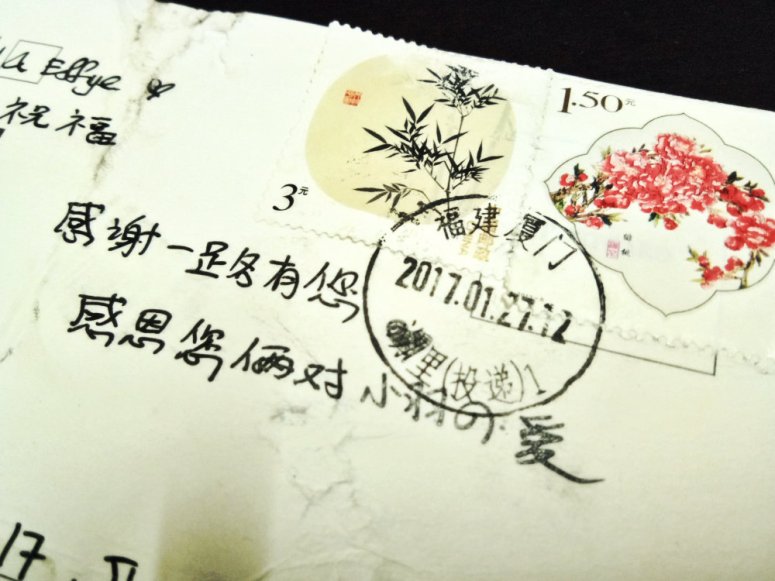 Effye
祝福
3元
1.50元
感谢一路有您
感恩您俩对小羽の爱
福建厦门
2017.01.27.12
里(投递)1
17